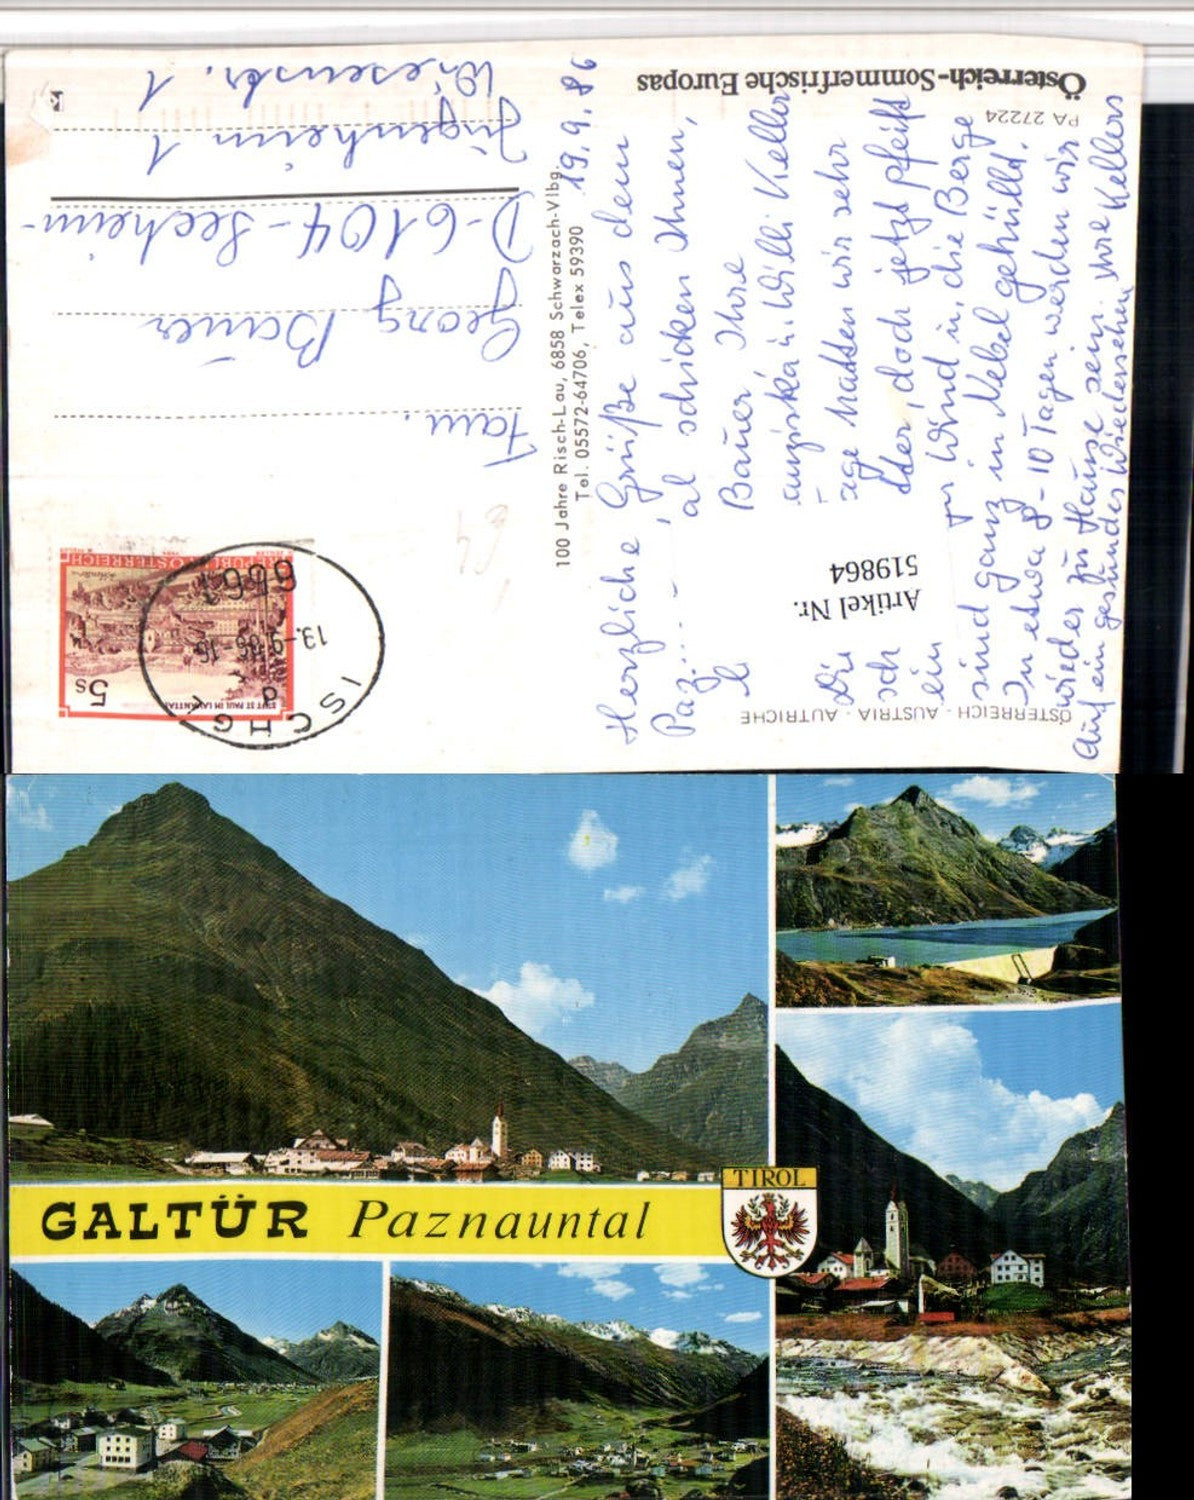 Österreich-Sommerfrische Europas
PA 27224
ÖSTERREICH · AUSTRIA · AUTRICHE
100 Jahre Risch-Lau, 6858 Schwarzach-Vlbg.
Tel. 05572-64706, Telex 59390
19.9.86
Herzliche Grüße aus dem
Paz....
al schicken Ihnen,
Bauer, Ihre
u. Willi Keller
Die
age hatten wir sehr
sch
tter, doch jetzt pfeift
ein
Wind u. die Berge
sind ganz in Nebel gehüllt.
In etwa 8-10 Tagen werden wir
wieder zu Hause sein.
Auf ein gesundes Wiedersehen Ihre Kellers
Artikel Nr.
519864
REPUBLIK ÖSTERREICH
5s
STIFT ST. PAUL IM LAVANTTAL
6561
13.-9.86-16
d
ISCHGL
Fam.
Georg Bauer
D-6104-Seeheim-
Jugenheim 1
Wiesenstr. 1
TIROL
GALTÜR Paznauntal